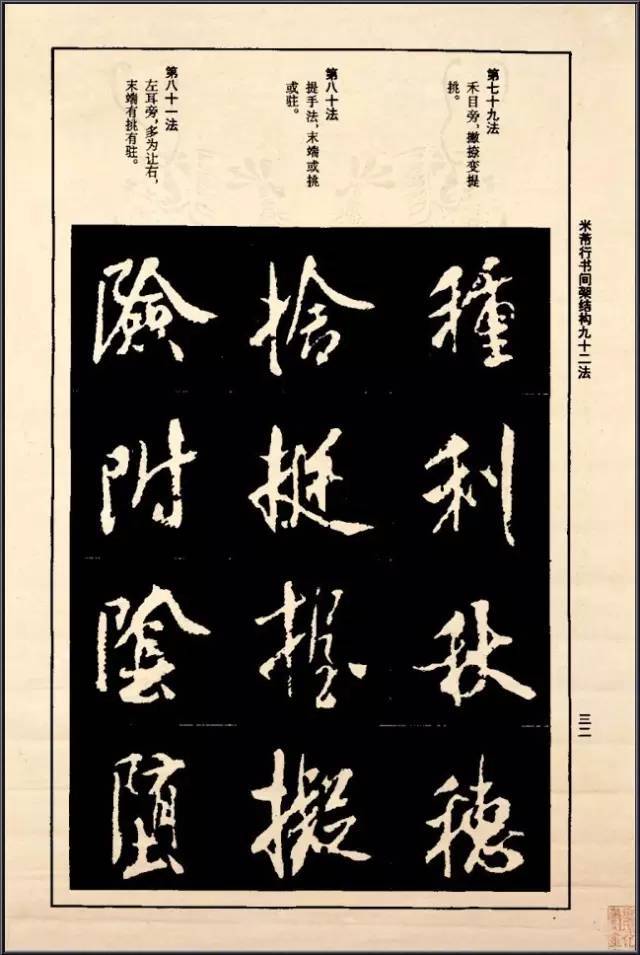 米芾行书间架结构九十二法
三二
第七十九法
禾目旁，撇捺变提
挑。
種利秋穗
第八十法
提手法，末端或挑
或驻。
捨挺握擬
第八十一法
左耳旁，多为让右，
末端有挑有驻。
險附陰墮